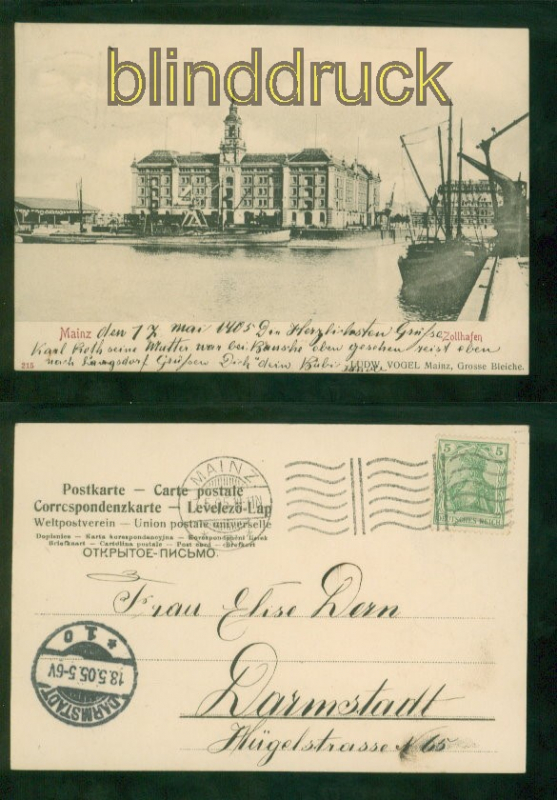 blinddruck
Mainz den 17 Mai 1905 Die Herzlichsten Grüße
Zollhafen
Karl Roth seine Mutter war bei Bausche oben gesehen reist oben
nach Grüßen Dich dein Bubi
215
LUDW. VOGEL Mainz, Grosse Bleiche.
MAINZ
5 5
DEUTSCHES REICH
Postkarte — Carte postale
Correspondenzkarte — Levelező-Lap
Weltpostverein — Union postale universelle
Dopisnice — Karta korespondencyjna — Korespondenční lístek
Briefkaart — Cartolina postale — Post card — Brefkort
ОТКРЫТОЕ-ПИСЬМО
Frau Elise Dern
Darmstadt
Hügelstrasse N 65
DARMSTADT
18.5.05.5-6V
* 1 0